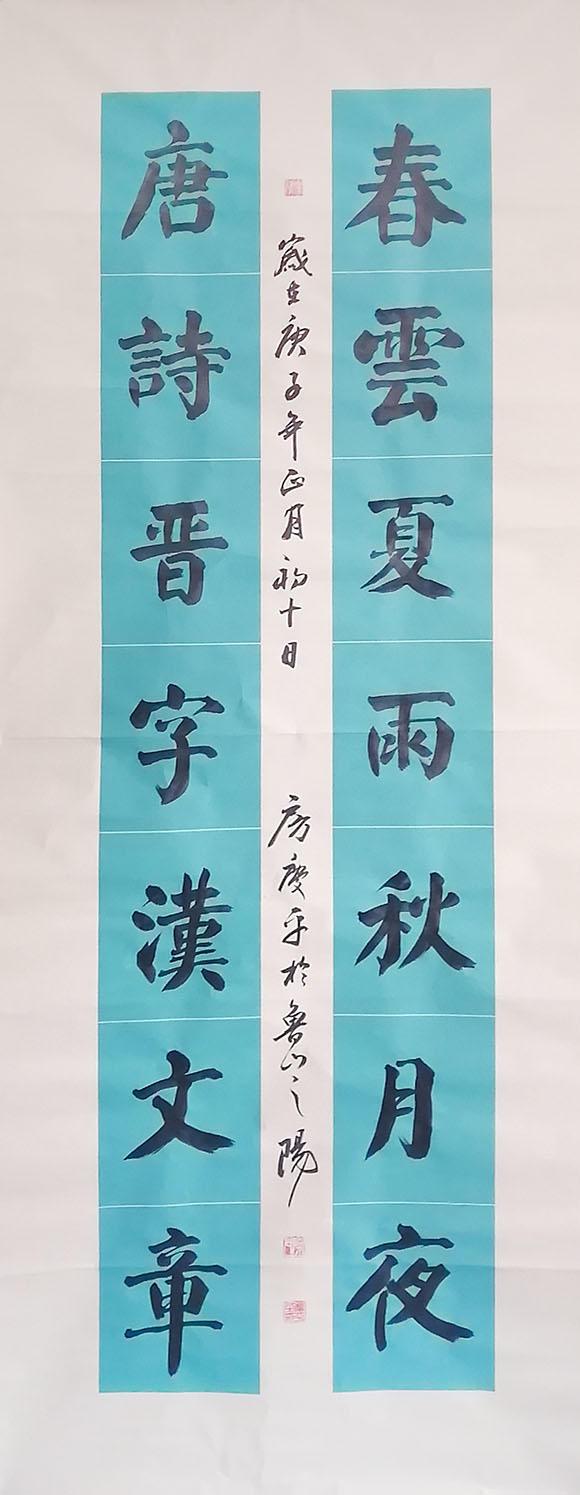 春雲夏雨秋月夜
唐詩晋字漢文章
歲在庚子年正月初十日
房慶平於魯山之陽